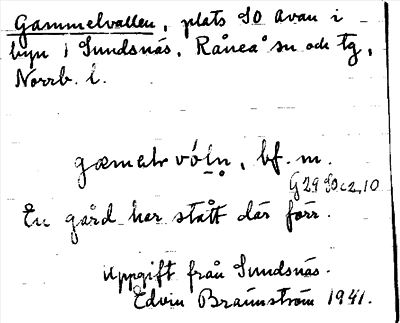 Gammelvallen, plats SO avan i
byn i Sundsnäs, Råneå sn och tg,
Norrb. l.
gæmalv vóln, bf. m.
G 29 SO c 2, 10
En gård har stått där förr.
Uppgift från Sundsnäs.
Edvin Brännström 1941.